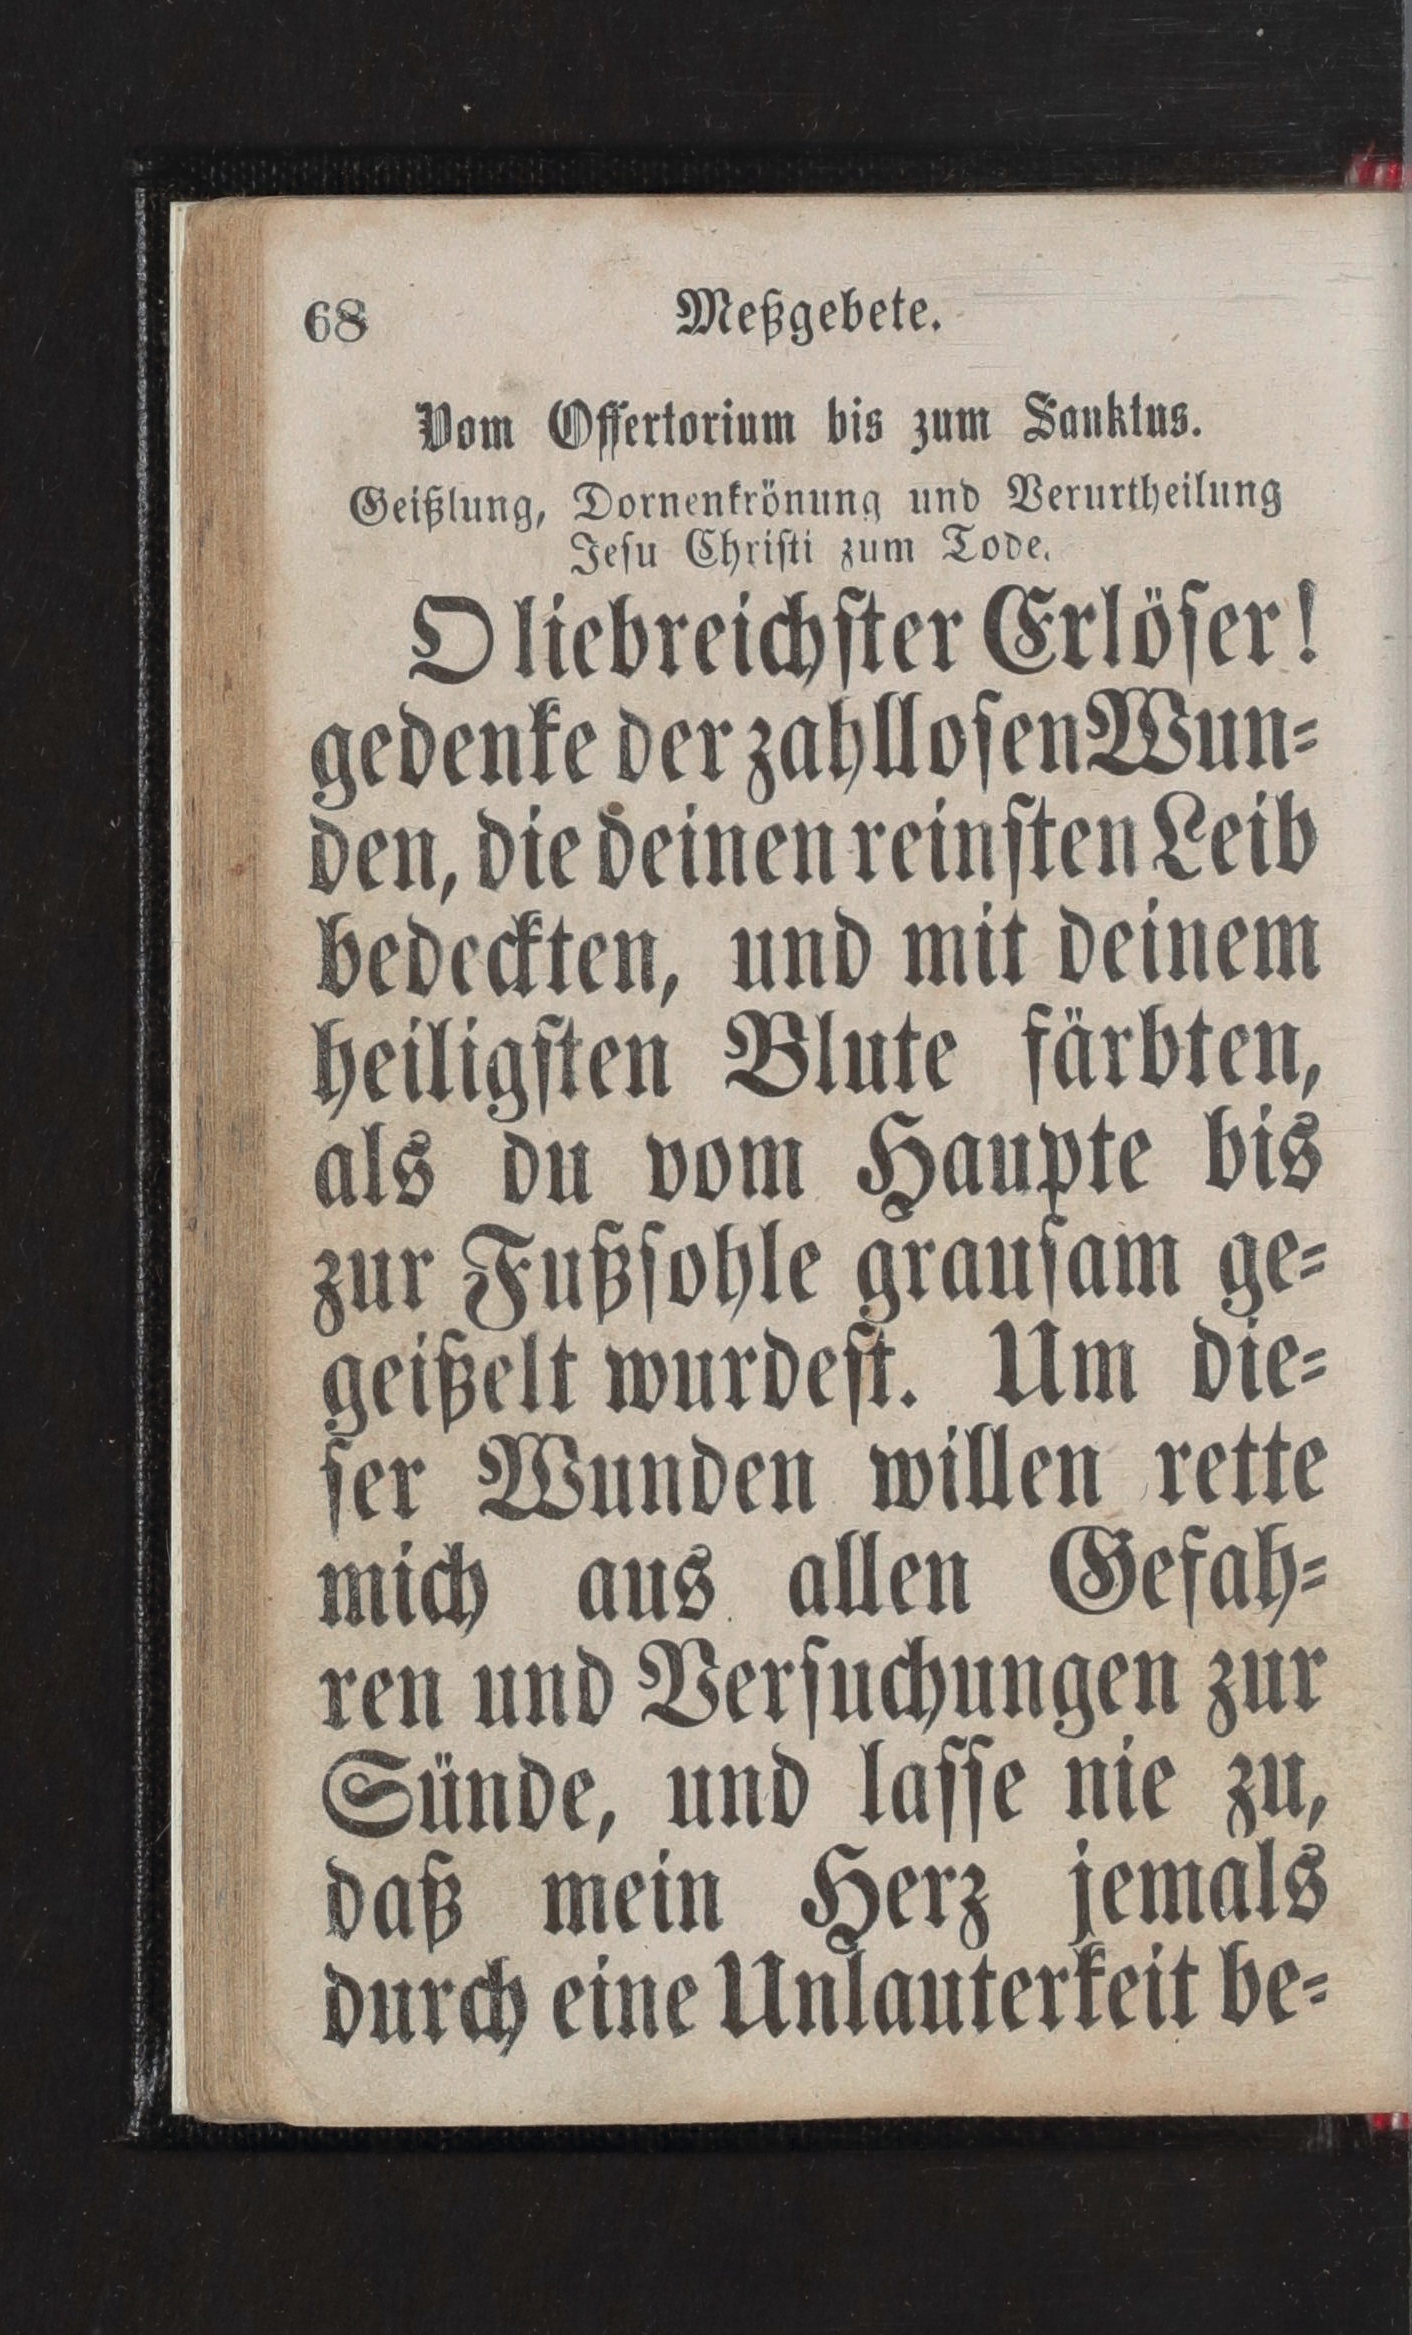 68 Meßgebete.
Vom Offertorium bis zum Sanktus.
Geißlung, Dornenkrönung und Verurtheilung
Jesu Christi zum Tode.
O liebreichster Erlöser!
gedenke der zahllosen Wun-
den, die deinen reinsten Leib
bedeckten, und mit deinem
heiligsten Blute färbten,
als du vom Haupte bis
zur Fußsohle grausam ge-
geißelt wurdest. Um die-
ser Wunden willen rette
mich aus allen Gefah-
ren und Versuchungen zur
Sünde, und lasse nie zu,
daß mein Herz jemals
durch eine Unlauterkeit be-